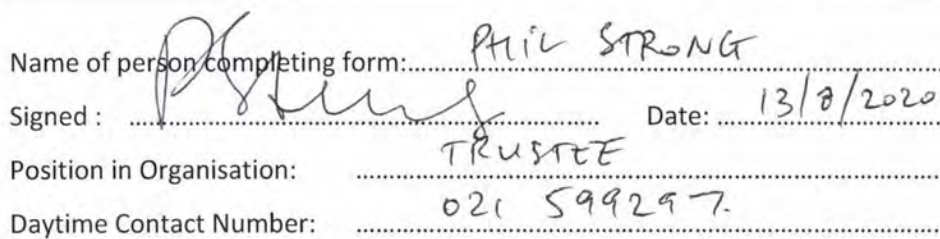 Name of person completing form: PHIL STRONG
Signed : PStrong Date: 13/8/2020
Position in Organisation: TRUSTEE
Daytime Contact Number: 021 599297.